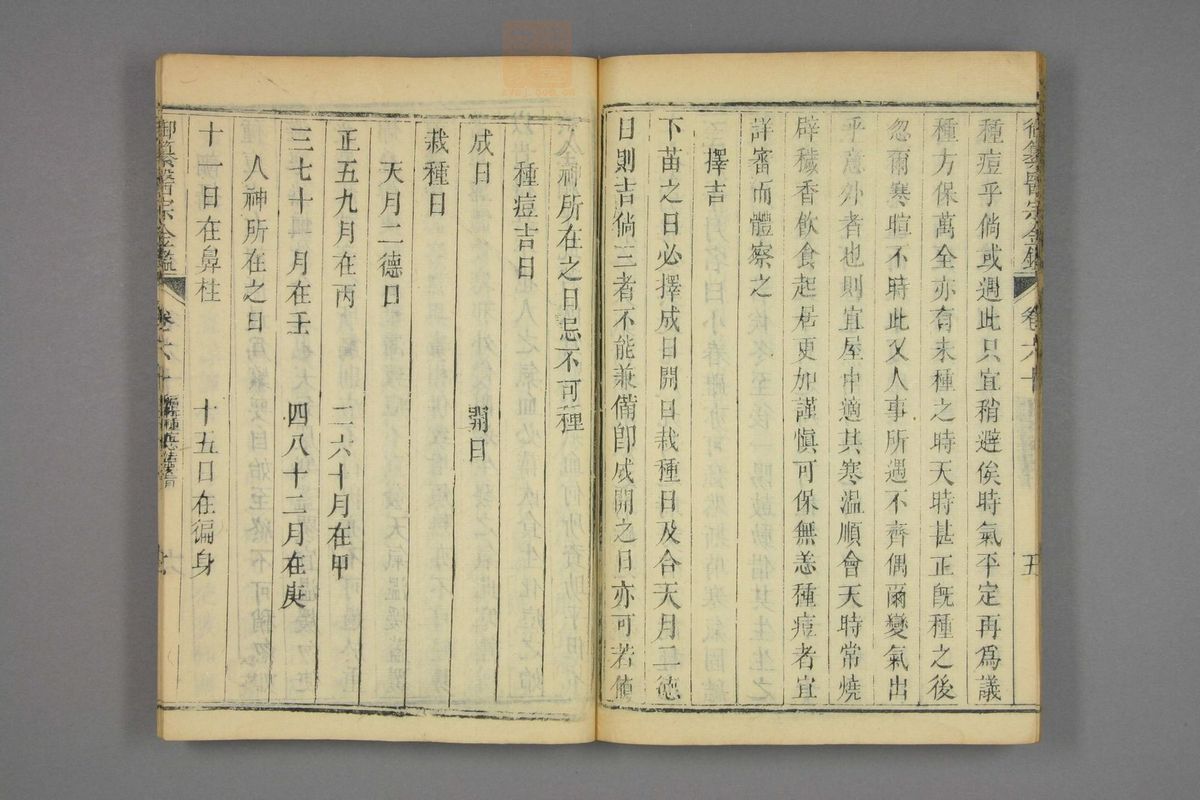 御纂醫宗金鑑 卷六十 五
種痘乎倘或遇此只宜稍避俟時氣平定再為議
種方保萬全亦有未種之時天時甚正旣種之後
忽爾寒暄不時此又人事所遇不齊偶爾變氣出
乎意外者也則宜屋中適其寒温順會天時常燒
辟穢香飲食起居更加謹愼可保無恙種痘者宜
詳審而體察之
擇吉
下苗之日必擇成日開日栽種日及合天月二德
日則吉倘三者不能兼備卽成開之日亦可若値
人神所在之日忌不可種
種痘吉日
成日 開日
栽種日
天月二德日
正五九月在丙 二六十月在甲
三七十一月在壬 四八十二月在庚
人神所在之日
十一日在鼻柱 十五日在徧身
御纂醫宗金鑑 卷六十